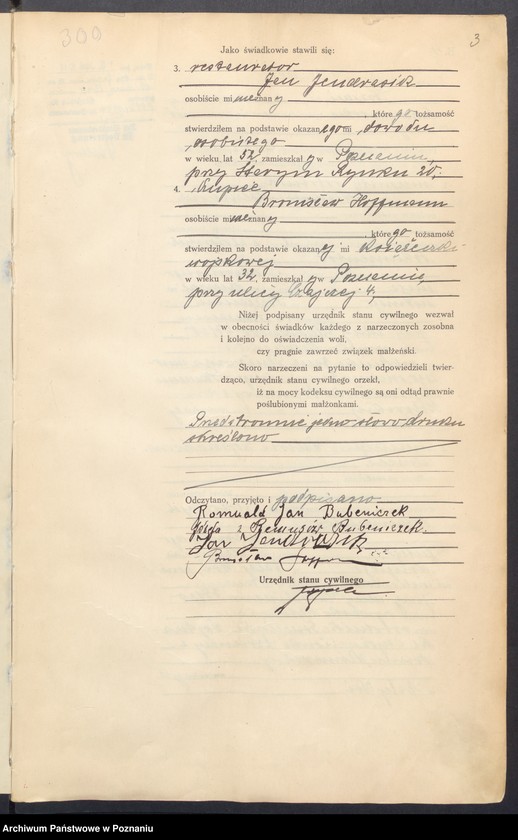 3
Jako świadkowie stawili się:
3. restaurator
Jan Jendrasiak
osobiście mi nieznany
, którego tożsamość
stwierdziłem na podstawie okazanego mi dowodu
osobistego
w wieku lat 52, zamieszkały w Poznaniu,
przy Starym Rynku 25.
4. kupiec
Bronisław Hoffmann
osobiście mi nieznany
, którego tożsamość
stwierdziłem na podstawie okazanej mi książeczki
wojskowej
w wieku lat 32, zamieszkały w Poznaniu,
przy ulicy 4,
Niżej podpisany urzędnik stanu cywilnego wezwał
w obecności świadków każdego z narzeczonych zosobna
i kolejno do oświadczenia woli,
czy pragnie zawrzeć związek małżeński.
Skoro narzeczeni na pytanie to odpowiedzieli twier-
dząco, urzędnik stanu cywilnego orzekł,
iż na mocy kodeksu cywilnego są oni odtąd prawnie
poślubionymi małżonkami.
Przedstronnie jedno słowo druku
skreślono
Odczytano, przyjęto i podpisano
Romuald Jan Bubeniczek
z Remusów Bubeniczek.
Jan Jendrasiak
Bronisław Hoffmann
Urzędnik stanu cywilnego
Archiwum Państwowe w Poznaniu